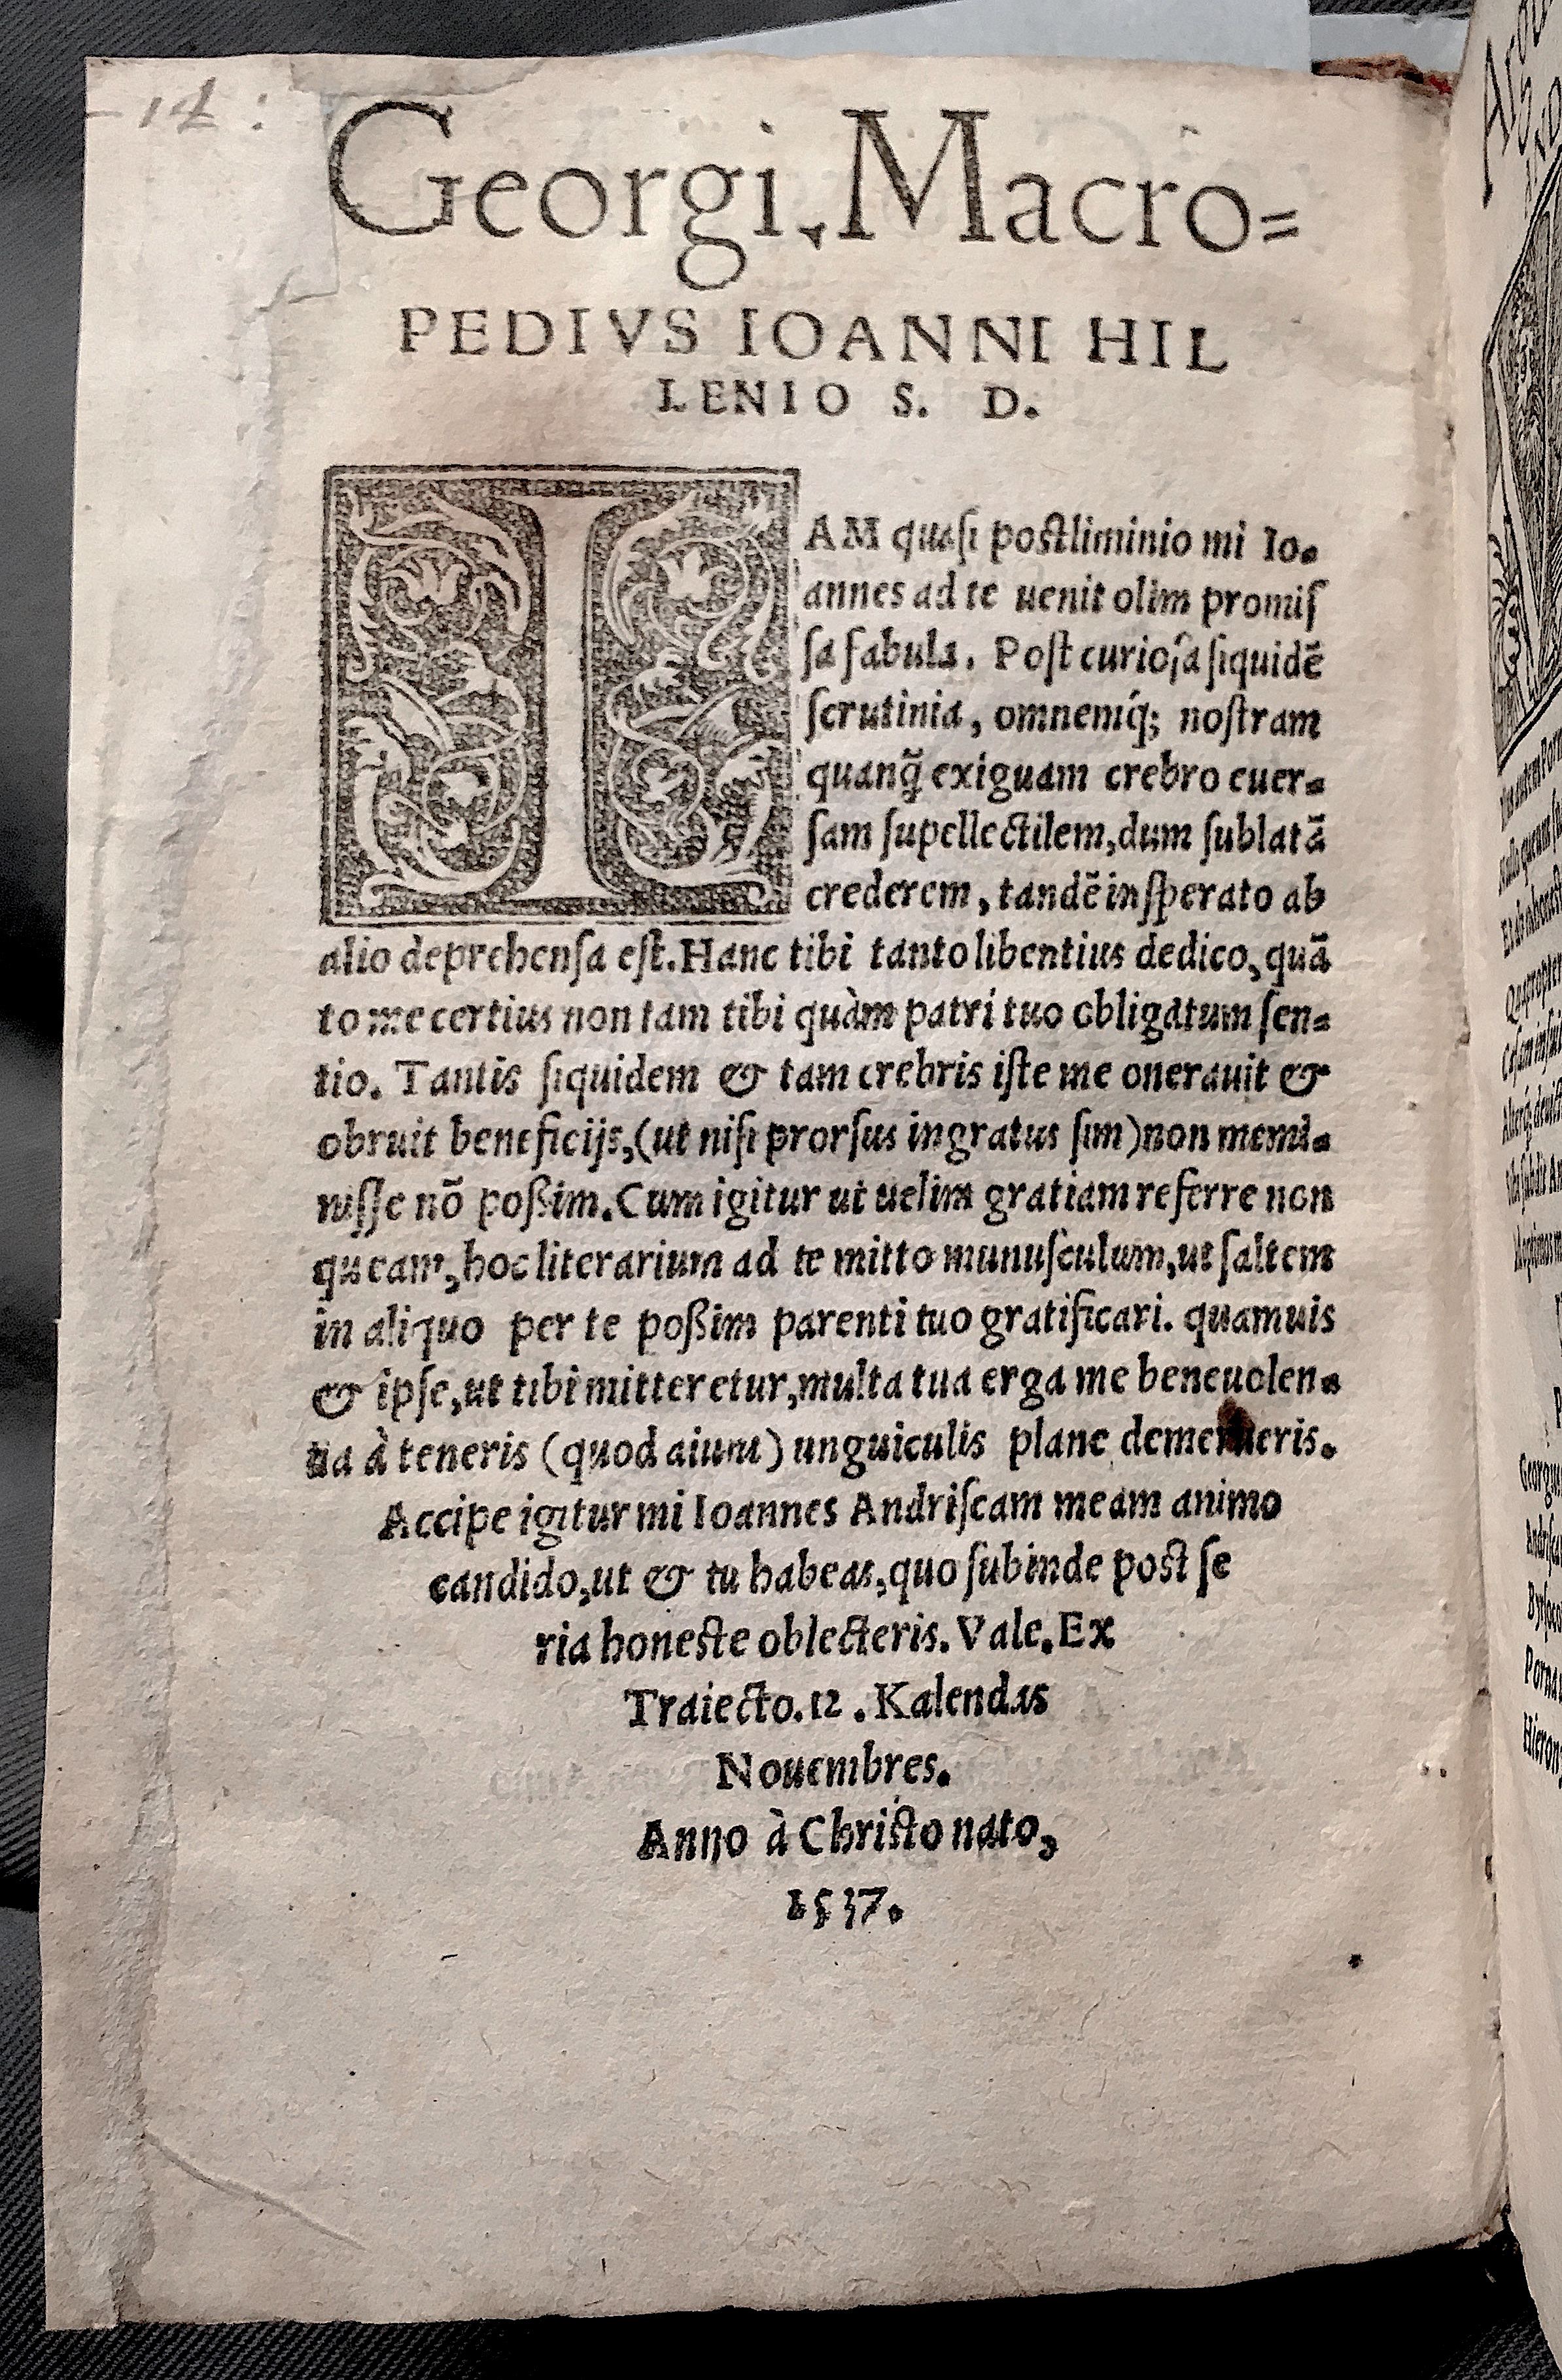 14:
Georgi. Macro=
PEDIVS IOANNI HIL
LENIO S. D.
IAM quaſi poſtliminio mi Io-
annes ad te uenit olim promiſ
ſa fabula. Poſt curioſa ſiquidẽ
ſcrutinia, omnemq́; noſtram
quanq̃ exiguam crebro euer-
ſam ſupellectilem, dum ſublatã
crederem, tandẽ inſperato ab
alio deprehenſa eſt. Hanc tibi tanto libentius dedico, quã
to me certius non tam tibi quàm patri tuo obligatum ſen-
tio. Tantis ſiquidem & tam crebris iſte me onerauit &
obruit beneficijs, (ut niſi prorſus ingratus ſim) non memi-
niſſe nõ poßim. Cum igitur ut uelim gratiam referre non
queam, hoc literarium ad te mitto munuſculum, ut ſaltem
in aliquo per te poßim parenti tuo gratificari. quamuis
& ipſe, ut tibi mitteretur, multa tua erga me beneuolen-
tia à teneris (quod aiunt) unguiculis plane demerueris.
Accipe igitur mi Ioannes Andriſcam meam animo
candido, ut & tu habeas, quo ſubinde poſt ſe
ria honeſte oblecteris. Vale. Ex
Traiecto. 12. Kalendas
Nouembres.
Anno à Chriſto nato,
1537.